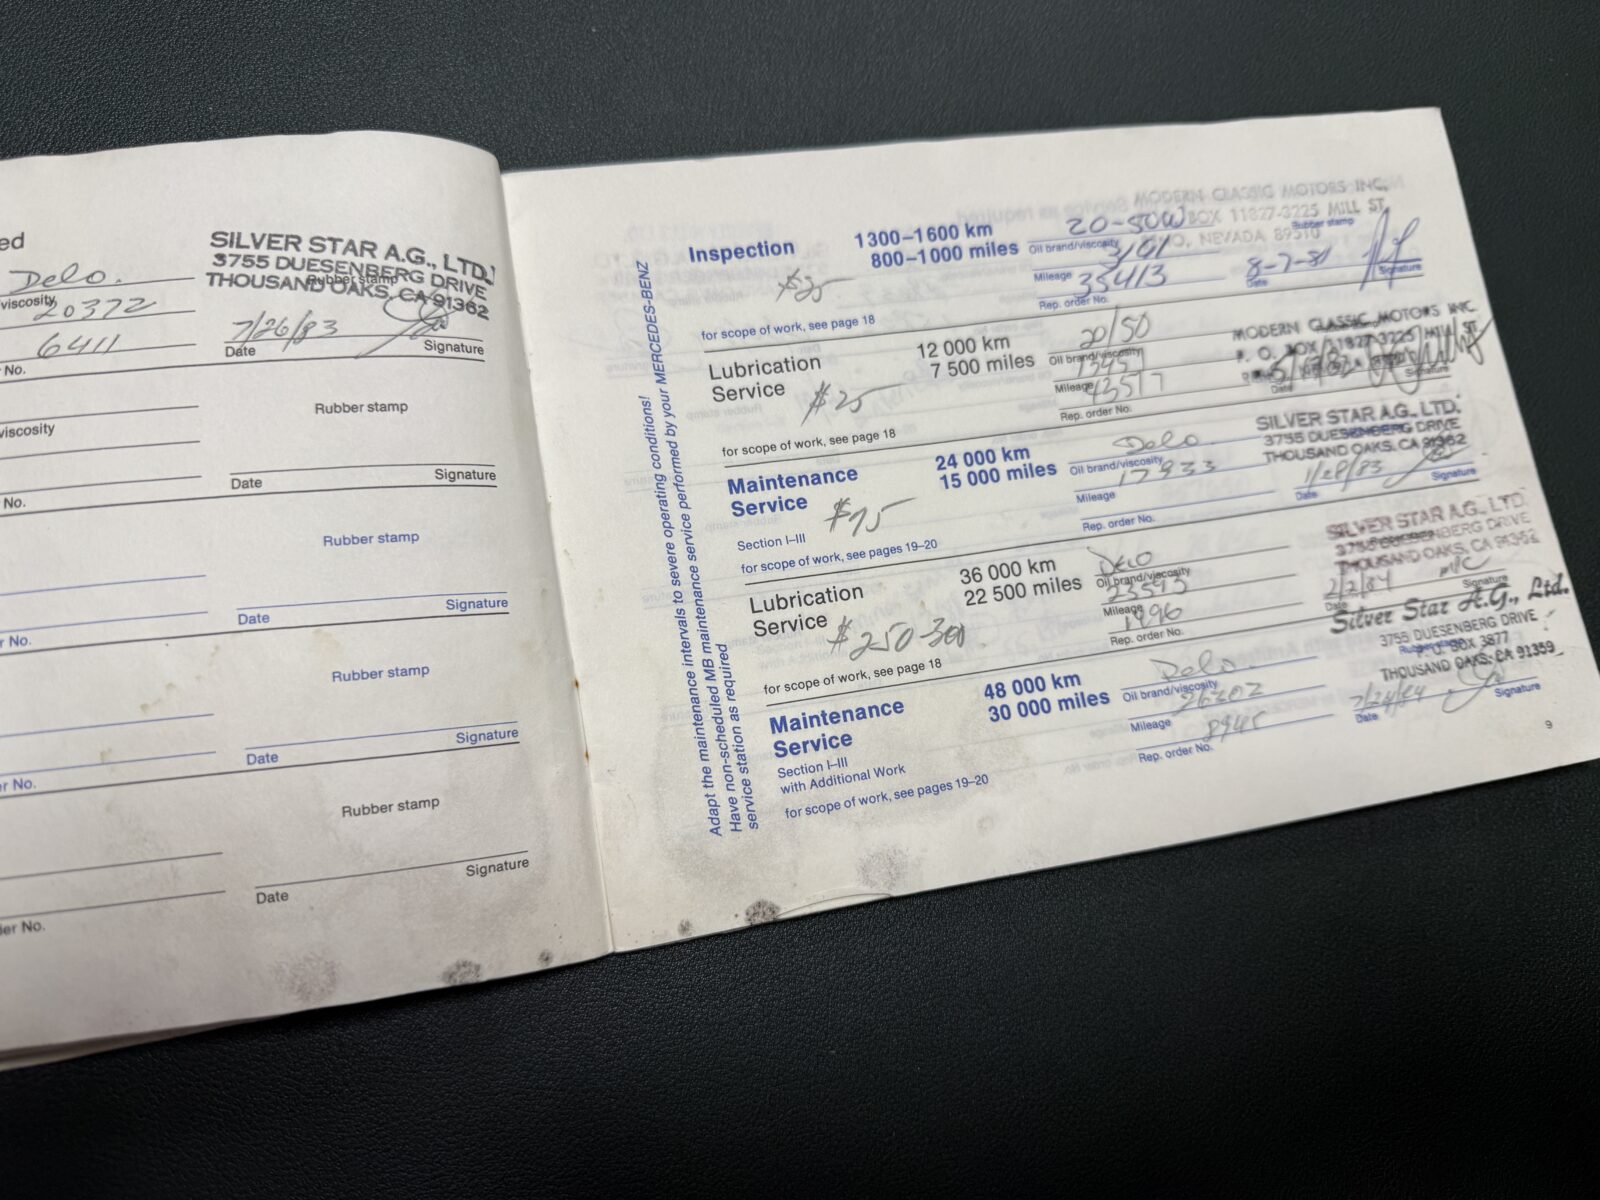 ed
Delo.
viscosity
20372
6411
No.
SILVER STAR A.G., LTD.
3755 DUESENBERG DRIVE
Rubber stamp
THOUSAND OAKS, CA 91362
7/26/83
Date
Signature
viscosity
No.
Rubber stamp
Date
Signature
r No.
Rubber stamp
Date
Signature
er No.
Rubber stamp
Date
Signature
der No.
Rubber stamp
Date
Signature
Adapt the maintenance intervals to severe operating conditions!
Have non-scheduled MB maintenance service performed by your MERCEDES-BENZ
service station as required
Inspection
1300–1600 km
800–1000 miles
$25
for scope of work, see page 18
20-50W
Oil brand/viscosity
Mileage
35413
Rep. order No.
MODERN CLASSIC MOTORS INC.
BOX 11827-3225 MILL ST.
Rubber stamp
NEVADA 89510
8-7-81
Date
Signature
Lubrication
Service
12 000 km
7 500 miles
$25
for scope of work, see page 18
20/50
Oil brand/viscosity
Mileage
43577
Rep. order No.
MODERN CLASSIC MOTORS INC
P. O. BOX 11827-3225 MILL ST.
Date
Signature
Maintenance
Service
24 000 km
15 000 miles
$75
Section I–III
for scope of work, see pages 19–20
Delo
Oil brand/viscosity
17933
Mileage
Rep. order No.
SILVER STAR A.G., LTD.
3755 DUESENBERG DRIVE
THOUSAND OAKS, CA 91362
1/28/83
Date
Signature
Lubrication
Service
36 000 km
22 500 miles
$250-300
for scope of work, see page 18
Delo
Oil brand/viscosity
23593
Mileage
1996
Rep. order No.
SILVER STAR A.G., LTD
3755 DUESENBERG DRIVE
THOUSAND OAKS, CA 91362
2/2/84
Date
Signature
Maintenance
Service
48 000 km
30 000 miles
Section I–III
with Additional Work
for scope of work, see pages 19–20
Delo
Oil brand/viscosity
26202
Mileage
8945
Rep. order No.
Silver Star A.G., Ltd.
3755 DUESENBERG DRIVE
P.O. BOX 3877
THOUSAND OAKS, CA 91359
7/24/84
Date
Signature
9